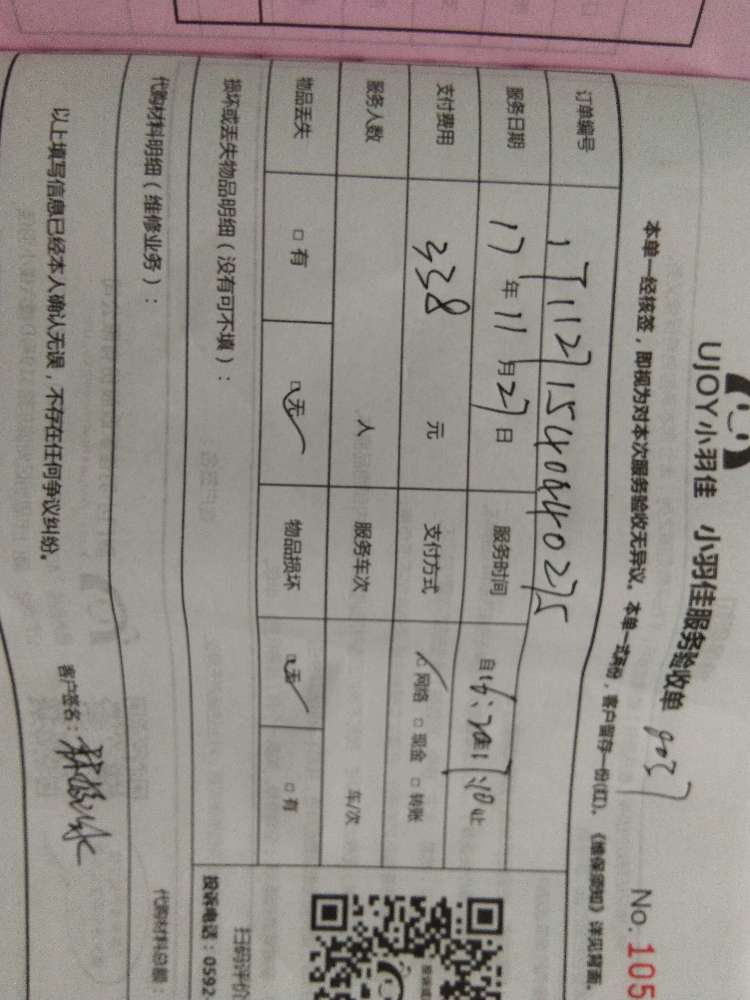 UJOY小羽佳 小羽佳服务验收单 No. 105
本单一经核签，即视为对本次服务验收无异议。本单一式两份，客户留存一份(红)。《维保须知》详见背面。
订单编号
服务日期 17年11月27日 服务时间
支付费用 338 元 支付方式 网络 □ 现金 □ 转账
服务人数 人 服务车次 车/次
物品丢失 □ 有 □ 无 物品损坏 □ 无 □ 有
损坏或丢失物品明细（没有可不填）：
代购材料明细（维修业务）： 代购材料总额：
以上填写信息已经本人确认无误，不存在任何争议纠纷。 客户签名：
扫码评价
投诉电话：0592